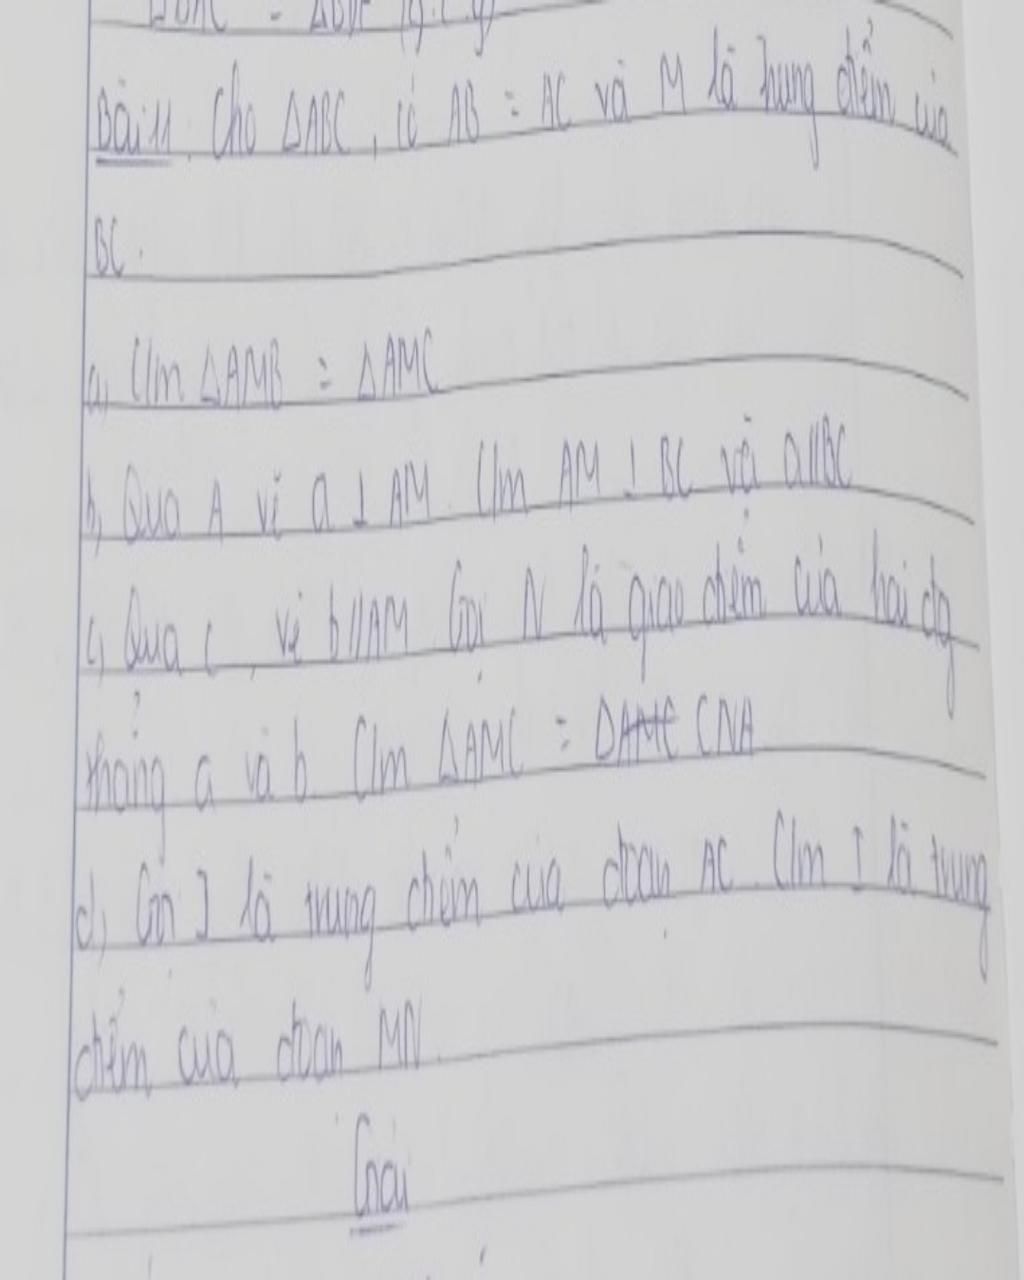 Bài 11. Cho ΔABC, có AB = AC và M là trung điểm của
BC.
a, C/m ΔAMB = ΔAMC
b, Qua A vẽ a ⊥ AM. C/m AM ⊥ BC và a//BC
c, Qua C, vẽ b//AM Gọi N là giao điểm của hai đg
thẳng a và b C/m ΔAMC = ΔAMC CNA
d, Gọi I là trung điểm của đoạn AC. C/m I là trung
điểm của đoạn MN.
Giải